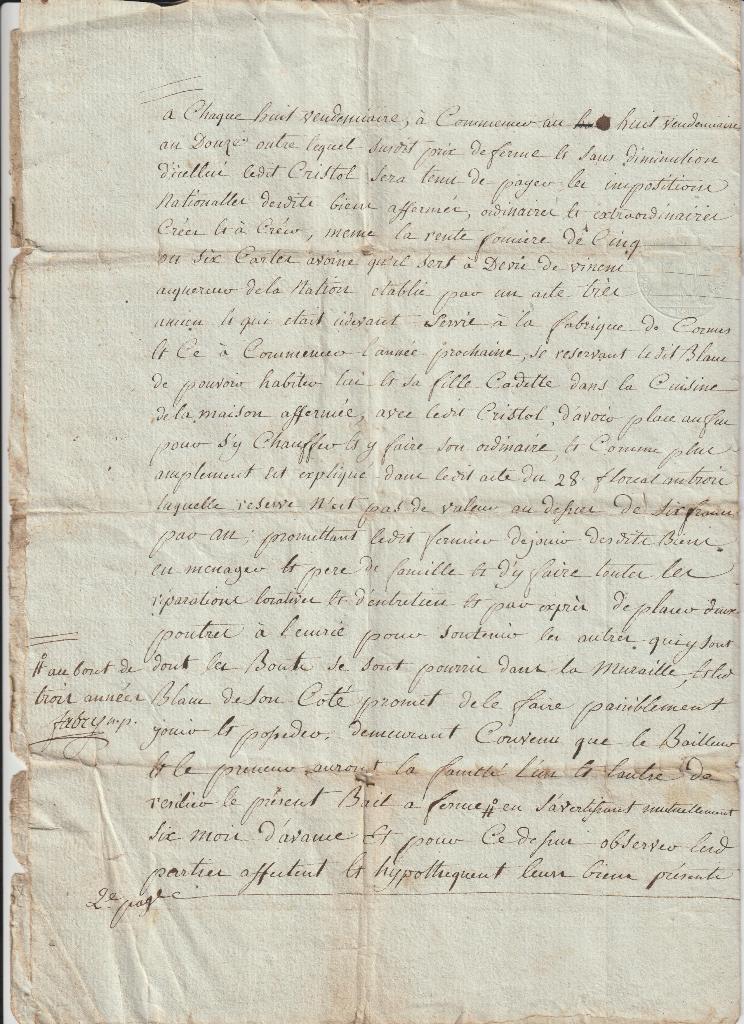 a Chaque huit vendemiaire, à Commencer au huit vendemiaire
an Douze outre lequel susdit prix de ferme et sans diminution
d'icelluy ledit Cristol sera tenu de payer les impositions
Nationalles desdits biens affermés, ordinaires et extraordinaires
Créés et à Créer, meme la rente fonciere de Cinq
ou six Cartes avoine qu'il sert à Devic de vincent
aquereur de la Nation etablie par un acte très
ancien et qui etait cidevant Servie à la fabrique de Cornus
et Ce à Commencer l'année prochaine, se reservant ledit Blanc
de pouvoir habiter lui et sa fille Cadette dans la Cuisine
de la maison affermée, avec ledit Cristol, d'avoir place au feu
pour s'y Chauffer et y faire son ordinaire, et Comme plus
amplement est expliqué dans ledit acte du 28 floreal an trois
laquelle reserve n'est pas de valeur au dessus de six francs
par an; promettant ledit fermier de jouir desdits Biens
en menager et pere de famille et d'y faire toutes les
réparations locatives et d'entretien et par exprès de placer deux
poutres à l'ecurie pour soutenir les autres qui y sont
dont les Bouts se sont pourris dans la Muraille, et led
Blanc de son Coté promet de le faire paisiblement
jouir et posseder, demeurant Convenu que le Bailleur
et le preneur auront la faculté l'un et l'autre de
resilier le présent Bail a ferme # en s'avertissant mutuellement
six mois d'avance Et pour Ce dessus observer lesd
parties affectent et hypothequent leurs biens présents
# au bout de
trois années
2e page